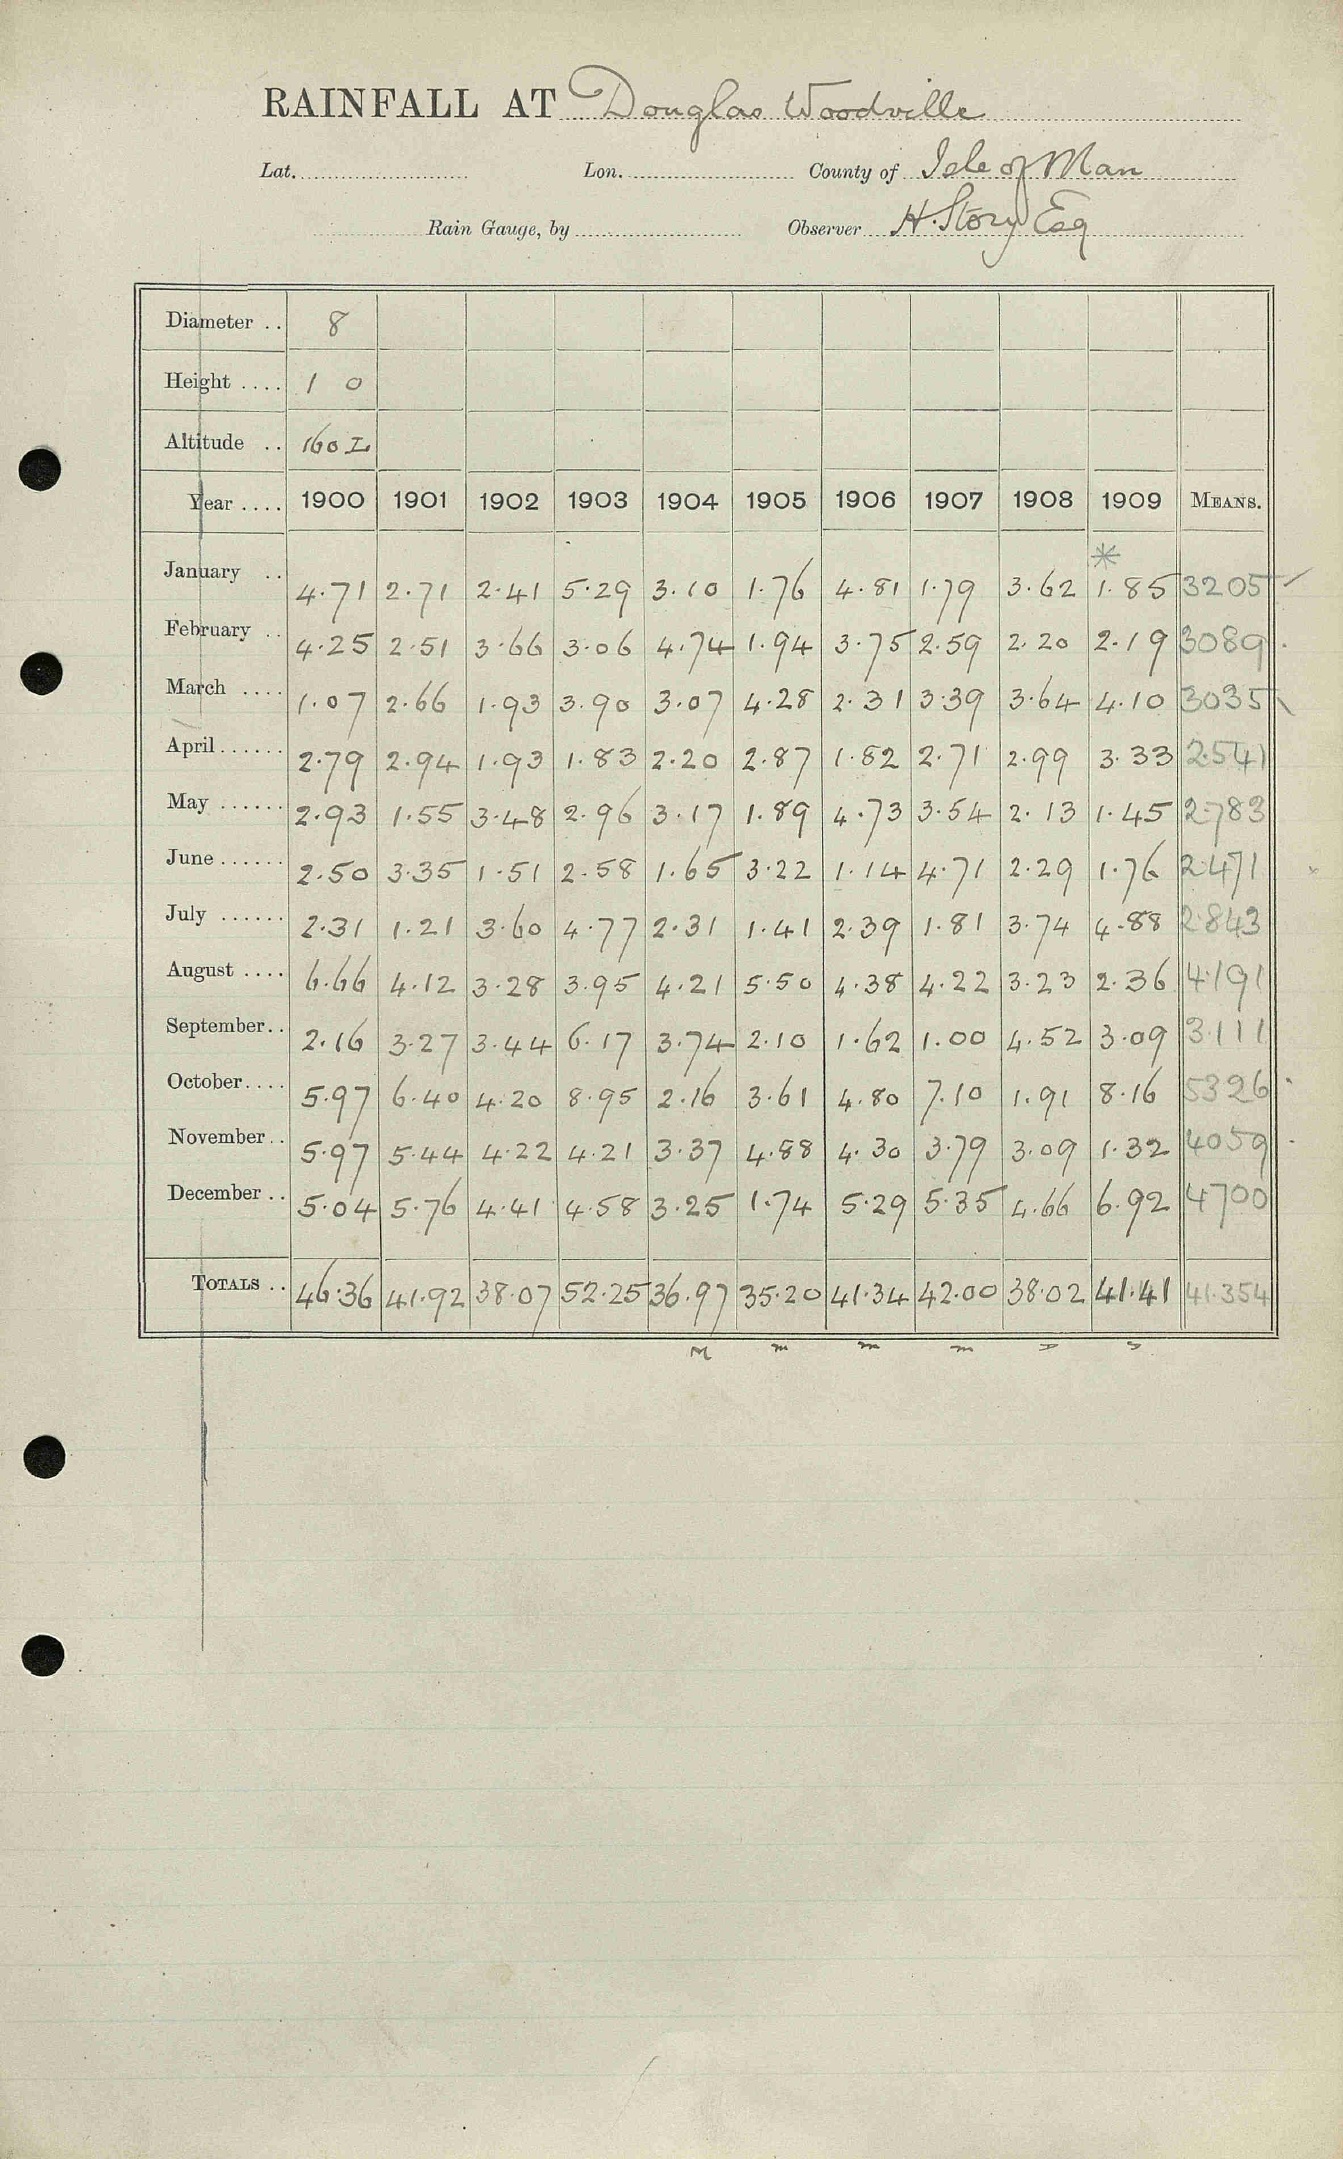 RAINFALL AT Douglas Woodville
Lat. Lon. County of Isle of Man
Rain Gauge, by Observer H. Story Esq
Diameter .. 8
Height .... 1 0
Altitude .. 160 L
Year .... 1900 1901 1902 1903 1904 1905 1906 1907 1908 1909 MEANS.
*
January .. 4.71 2.71 2.41 5.29 3.10 1.76 4.81 1.79 3.62 1.85 3205
February .. 4.25 2.51 3.66 3.06 4.74 1.94 3.75 2.59 2.20 2.19 3089
March .... 1.07 2.66 1.93 3.90 3.07 4.28 2.31 3.39 3.64 4.10 3035
April ...... 2.79 2.94 1.93 1.83 2.20 2.87 1.82 2.71 2.99 3.33 2.541
May ...... 2.93 1.55 3.48 2.96 3.17 1.89 4.73 3.54 2.13 1.45 2.783
June ...... 2.50 3.35 1.51 2.58 1.65 3.22 1.14 4.71 2.29 1.76 2.471
July ...... 2.31 1.21 3.60 4.77 2.31 1.41 2.39 1.81 3.74 4.88 2.843
August .... 6.66 4.12 3.28 3.95 4.21 5.50 4.38 4.22 3.23 2.36 4.191
September.. 2.16 3.27 3.44 6.17 3.74 2.10 1.62 1.00 4.52 3.09 3.111
October.... 5.97 6.40 4.20 8.95 2.16 3.61 4.80 7.10 1.91 8.16 5326
November.. 5.97 5.44 4.22 4.21 3.37 4.88 4.30 3.79 3.09 1.32 4059
December .. 5.04 5.76 4.41 4.58 3.25 1.74 5.29 5.35 4.66 6.92 4700
TOTALS .. 46.36 41.92 38.07 52.25 36.97 35.20 41.34 42.00 38.02 41.41 41.354
M m m m